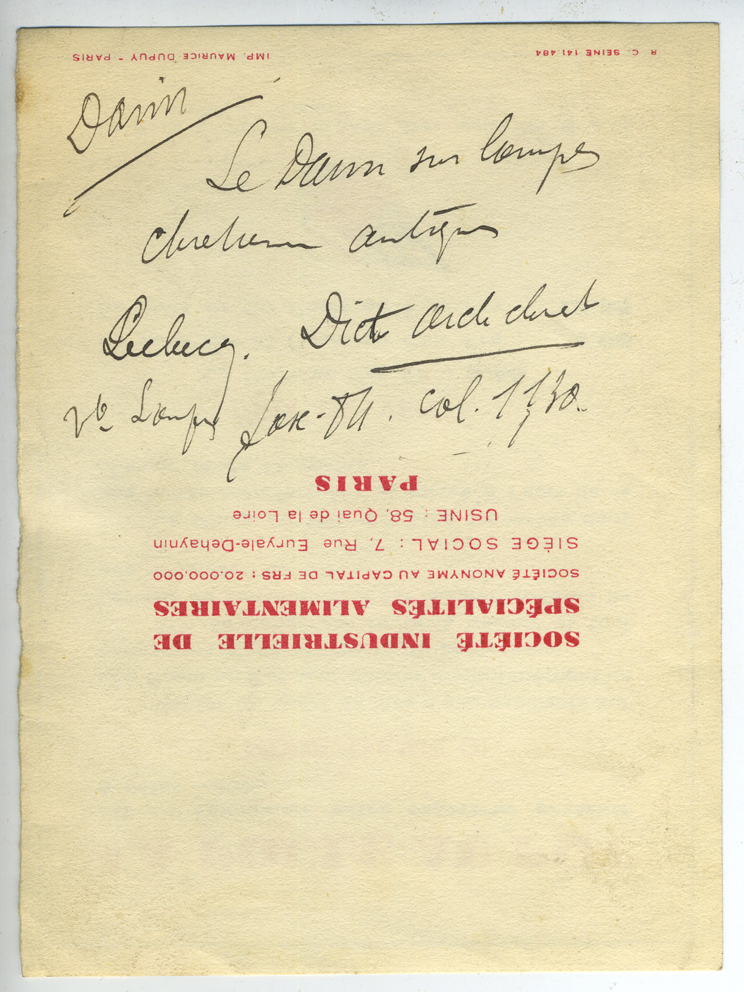 Daim
Le Daim sur lampes
chretiennes antiques
Leclercq. Dict arch chret
v° Lampes col. 1130.
SOCIÉTÉ INDUSTRIELLE DE
SPÉCIALITÉS ALIMENTAIRES
SOCIÉTÉ ANONYME AU CAPITAL DE FRS : 20.000.000
SIÈGE SOCIAL : 7, Rue Euryale-Dehaynin
USINE : 58, Quai de la Loire
PARIS
R. C. SEINE 141.484
IMP. MAURICE DUPUY - PARIS